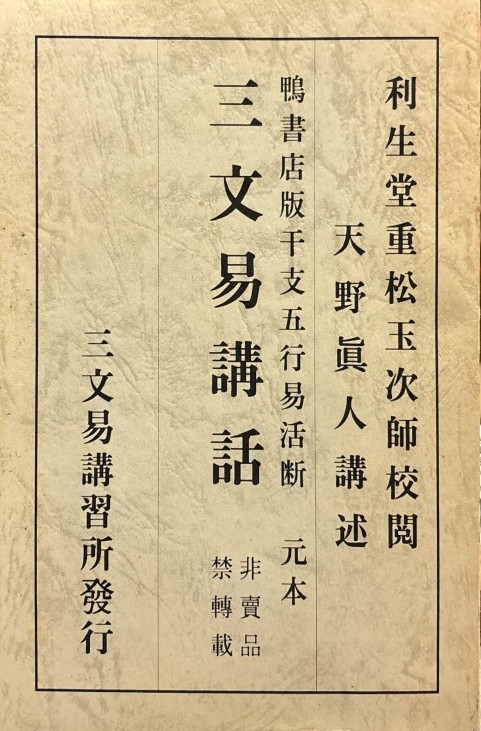 利生堂重松玉次師校閲
天野眞人講述
鴨書店版干支五行易活断　元本
三文易講話
非賣品
禁轉載
三文易講習所發行